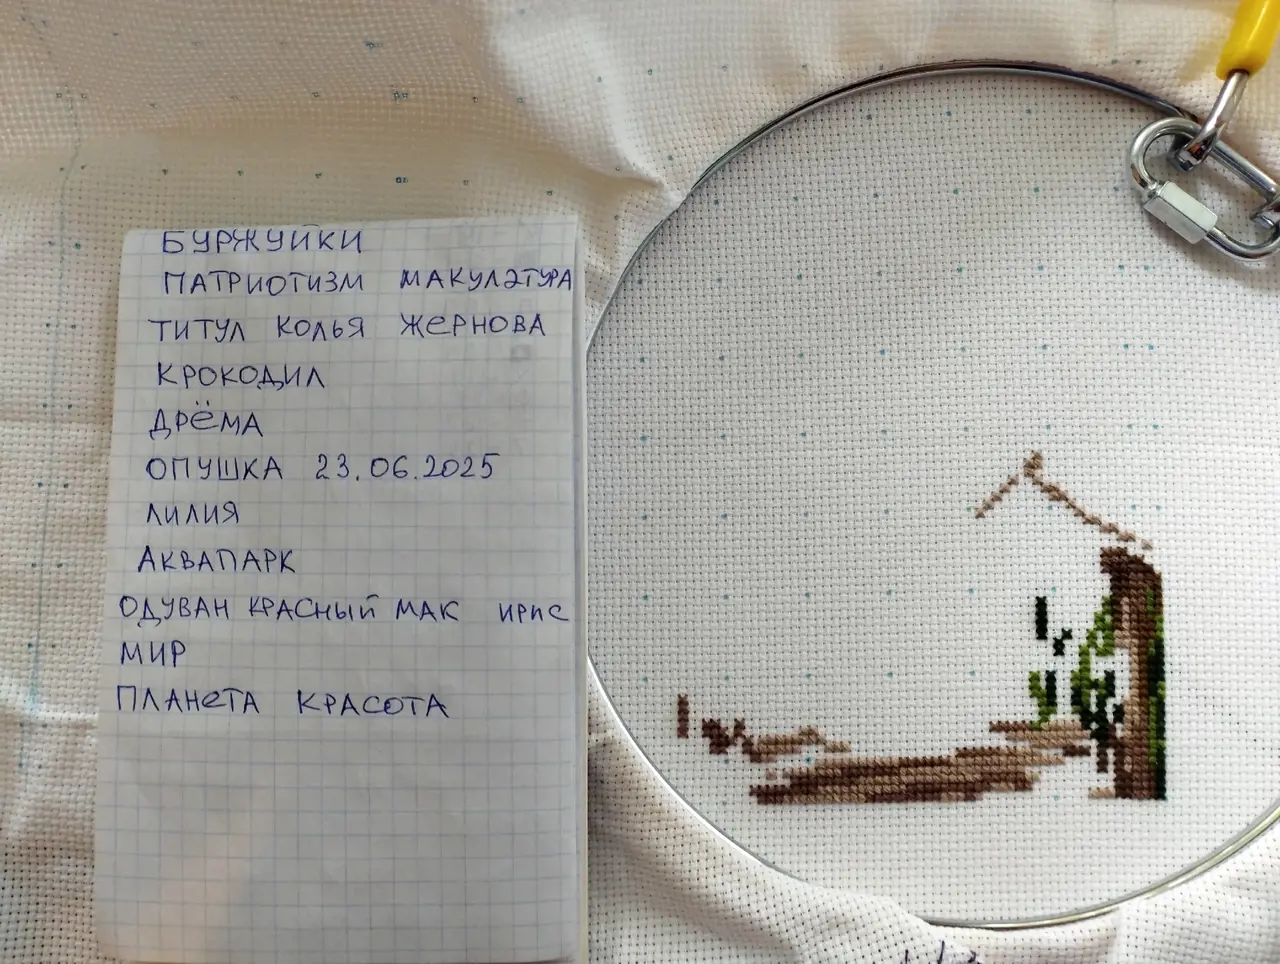 БУРЖУЙКИ
ПАТРИОТИЗМ МАКУЛАТУРА
ТИТУЛ КОЛЬЯ ЖЕРНОВА
КРОКОДИЛ
ДРЁМА
ОПУШКА 23.06.2025
ЛИЛИЯ
АКВАПАРК
ОДУВАН КРАСНЫЙ МАК ИРИС
МИР
ПЛАНЕТА КРАСОТА